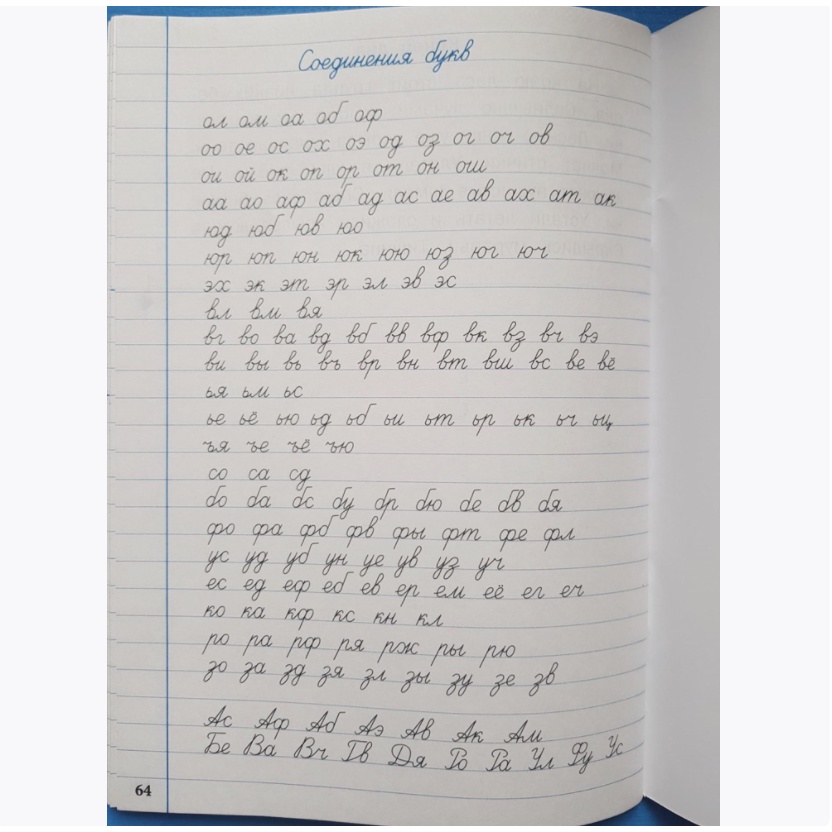 Соединения букв
ол ом оа об оф
оо ое ос ох оэ од оз ог оч ов
ои ой ок оп ор от он ош
аа ао аф аб ад ас ае ав ах ат ак
юд юб юв юо
юр юп юн юк юю юз юг юч
эх эк эт эр эл эв эс
вл вм вя
вг во ва вд вб вв вф вк вз вч вэ
ви вы вь въ вр вн вт вш вс ве вё
ья ьм ьс
ье ьё ью ьд ьб ьи ьт ьр ьк ьч ьщ
ъя ъе ъё ъю
со са сд
бо ба бс бу бр бю бе бв бя
фо фа фб фв фы фт фе фл
ус уд уб ун уе ув уз уч
ес ед еф еб ев ер ем её ег еч
ко ка кф кс кн кл
ро ра рф ря рж ры рю
зо за зд зя зл зы зу зе зв
Ас Аф Аб Аэ Ав Ак Ам
Бе Ва Вч Гв Дя Го Га Ул Фу Ус
64